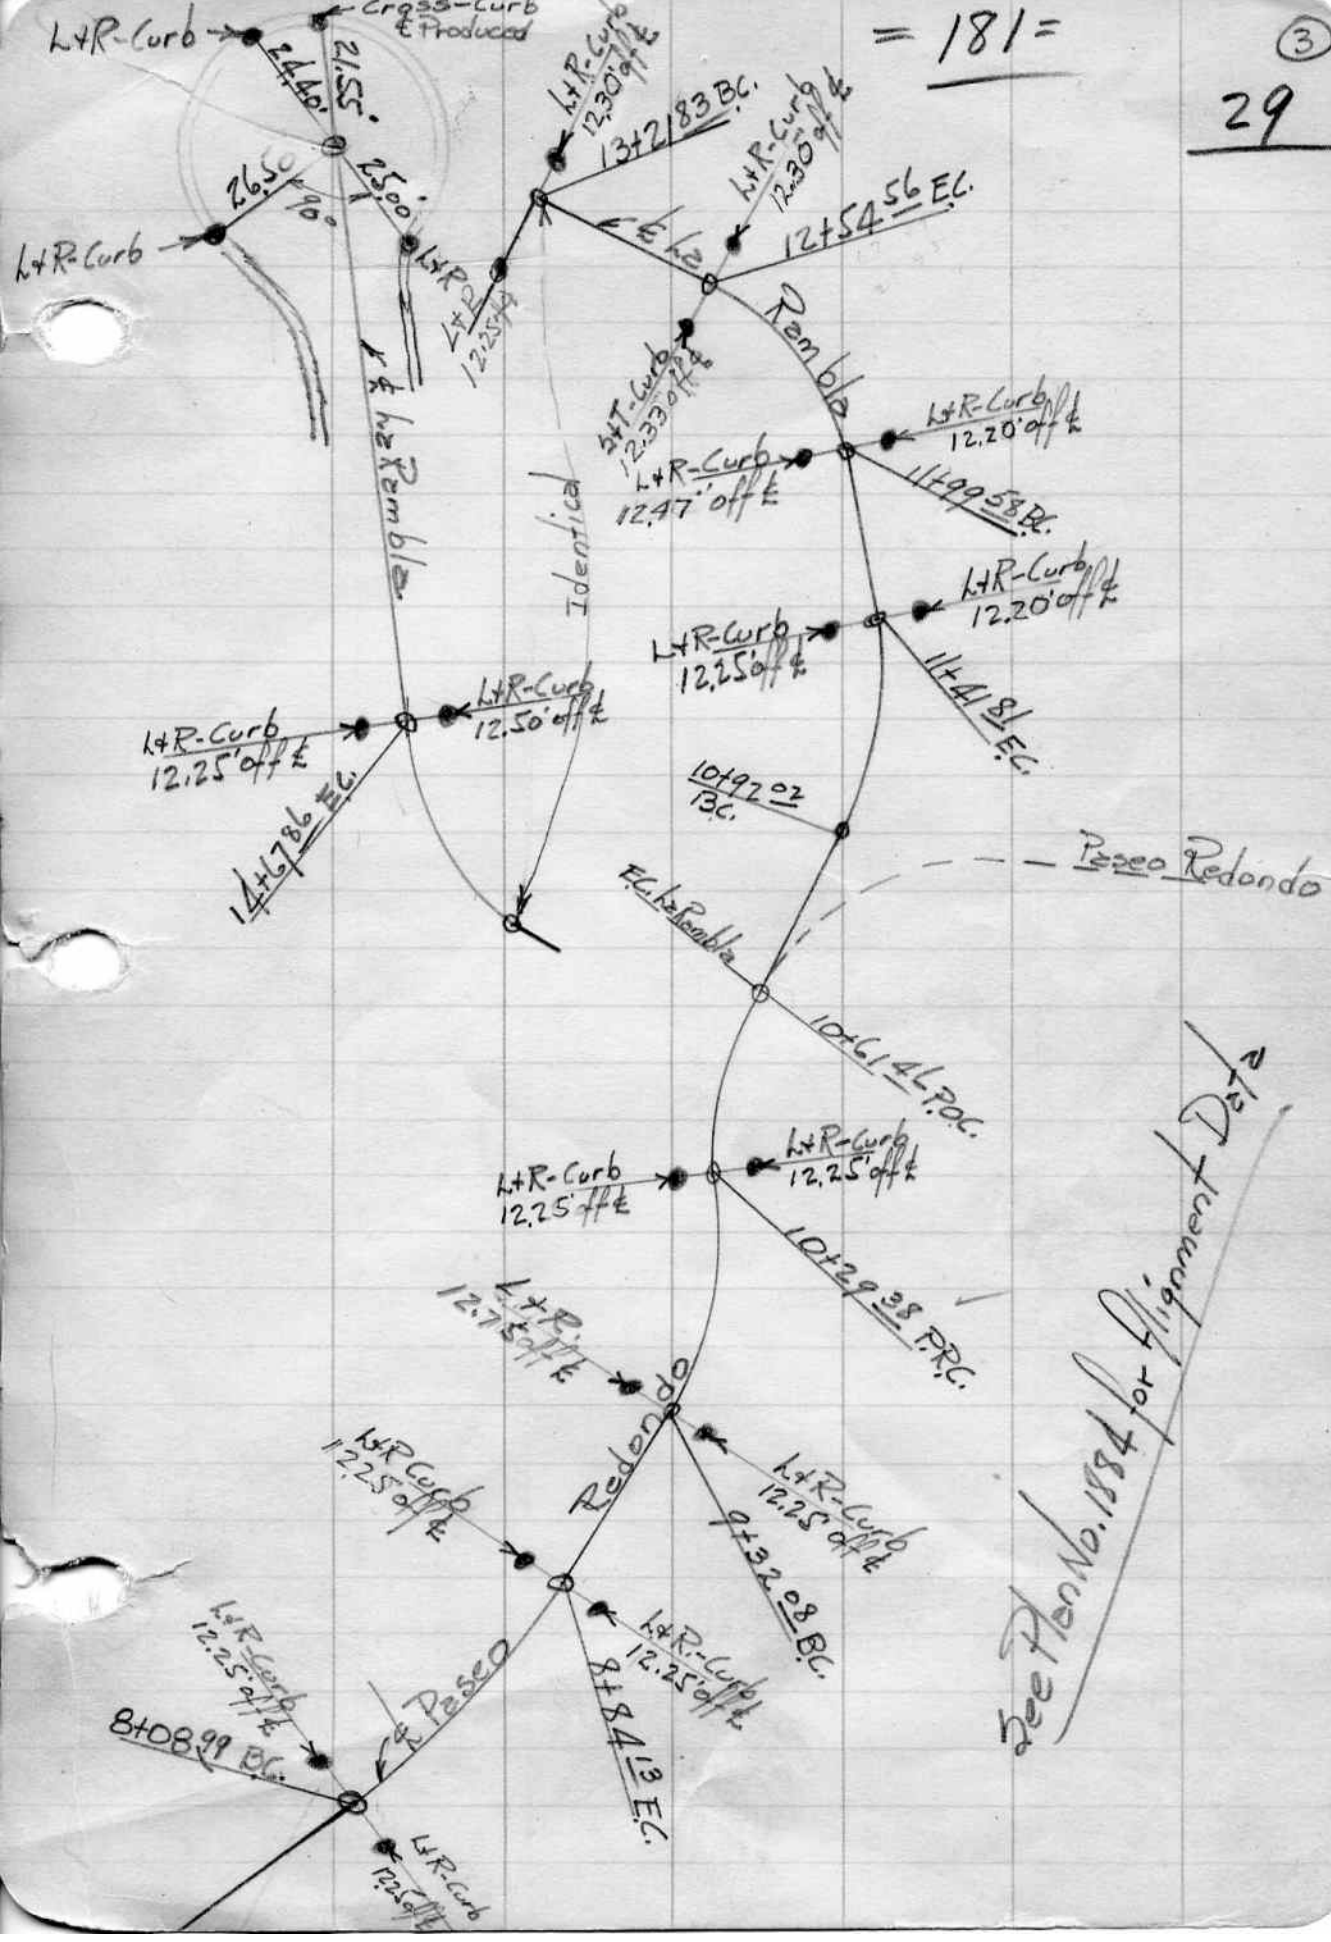 = 181 =
3
29
L+R-Curb
Cross-Curb
℄ Produced
24.40'
21.55'
26.50
90°
25.00'
L+R-Curb
L+R
L+R
12.25 off ℄
L+R-Curb
12.30' off ℄
13+21 83 B.C.
L+R-Curb
12.30' off ℄
12+54 56 E.C.
℄ La
Rambla
S+T-Curb
12.33' off ℄
L+R-Curb
12.20' off ℄
L+R-Curb
12.47' off ℄
11+99 58 B.C.
℄ La Rambla
Identical
L+R-Curb
12.20' off ℄
L+R-Curb
12.25' off ℄
11+41 81 E.C.
L+R-Curb
12.50' off ℄
L+R-Curb
12.25' off ℄
14+67 86 E.C.
10+92 02
B.C.
Paseo Redondo
E.C. La Rambla
10+61 46 P.O.C.
L+R-Curb
12.25' off ℄
L+R-Curb
12.25' off ℄
10+29 38 P.R.C.
L+R.
12.75 off ℄
L+R-Curb
12.25' off ℄
9+32 08 B.C.
Redondo
L+R Curb
12.25 off ℄
L+R.-Curb
12.25' off ℄
8+84 13 E.C.
℄ Paseo
L+R-Curb
12.25' off ℄
8+08 99 B.C.
L+R-Curb
12.25 off ℄
See Plan No. 1884 for Alignment Data